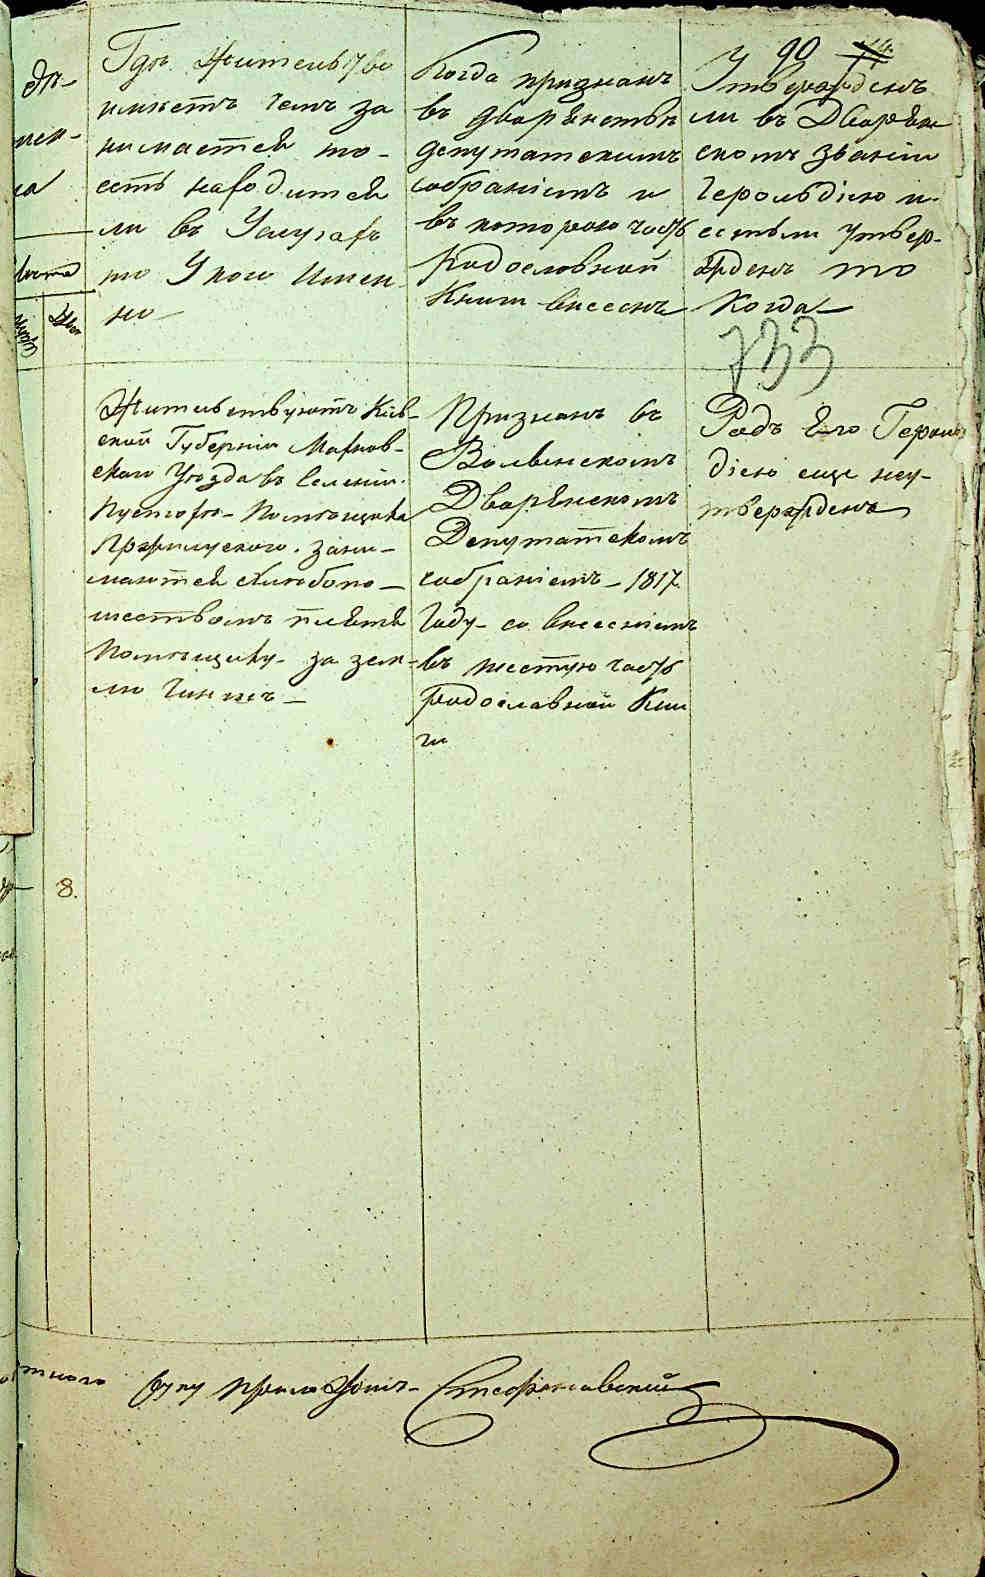 90 74.
Гдѣ Жительство
имѣетъ чемъ за
нимается то-
есть находится
ли въ Услугахъ
то У кого Имен
но
Когда признанъ
въ дворянствѣ
депутатскимъ
собраніемъ и
въ которою часть
Родословной
Книги внесенъ
Утвержденъ
ли въ Дворян
скомъ званіи
Герольдіею и
естьли утвер-
жденъ то
Когда
733
Жительствуютъ Кіев-
ской Губерніи
скаго Уѣзда въ Селеніи
Помѣщика
зани-
маются хлѣбопа-
шествомъ платя
Помѣщику за зем-
лю Чиншъ
Признанъ въ
Волынскомъ
Дворянскомъ
Депутатскомъ
собраніемъ 1817
Году со внесеніемъ
въ шестую часть
родославной Кни
ги
Родъ Его Героль
діею еще неу-
твержденъ
8.
руку приложилъ